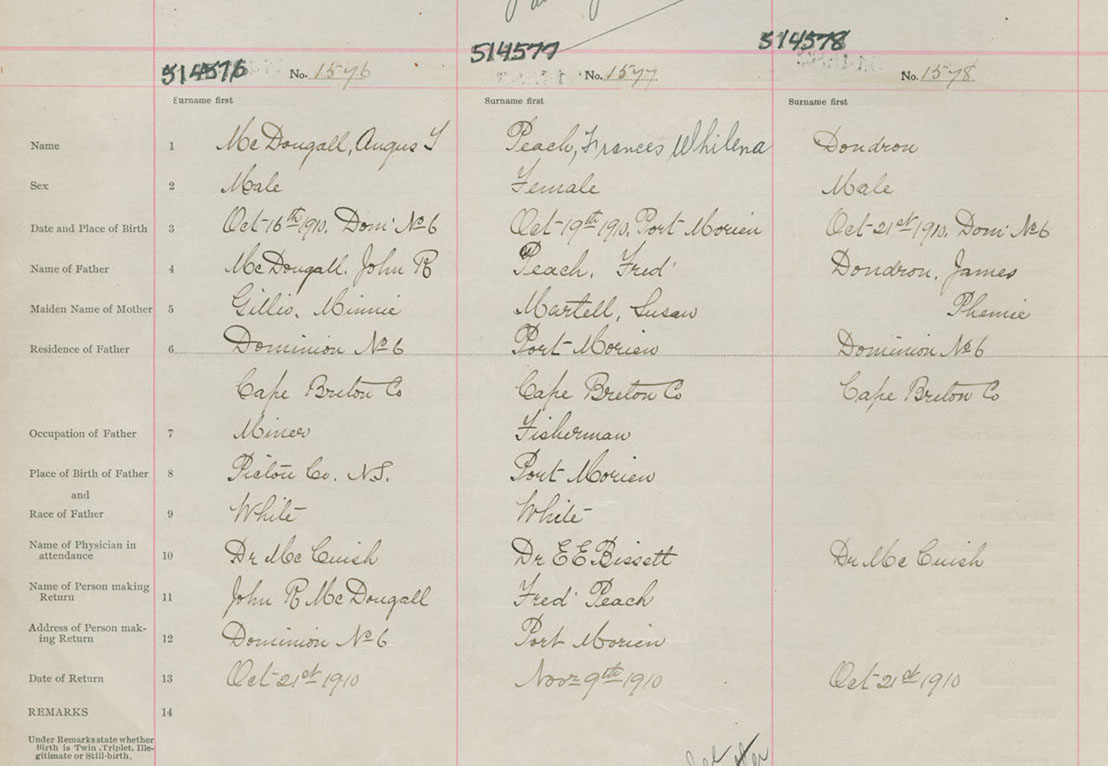 514576 514577 514578
No. 1576 No. 1577 No. 1578
Surname first Surname first Surname first
Name 1 McDougall, Angus J Peach, Frances Whilena Dondron
Sex 2 Male Female Male
Date and Place of Birth 3 Oct 16th 1910. Dom. No 6 Oct 19th 1910. Port Morien Oct 21st 1910. Dom. No 6
Name of Father 4 McDougall. John R Peach, Fred' Dondron, James
Maiden Name of Mother 5 Gillis, Minnie Martell, Susan Phemie
Residence of Father 6 Dominion No 6 Port Morien Dominion No 6
Cape Breton Co Cape Breton Co Cape Breton Co
Occupation of Father 7 Miner Fisherman
Place of Birth of Father 8 Pictou Co. N.S. Port Morien
and
Race of Father 9 White White
Name of Physician in
attendance 10 Dr McCuish Dr E E Bissett Dr McCuish
Name of Person making
Return 11 John R McDougall Fred' Peach
Address of Person mak-
ing Return 12 Dominion No 6 Port Morien
Date of Return 13 Oct 21st 1910 Novr 9th 1910 Oct 21st 1910
REMARKS 14
Under Remarks state whether
Birth is Twin, Triplet, Ille-
gitimate or Still-birth.